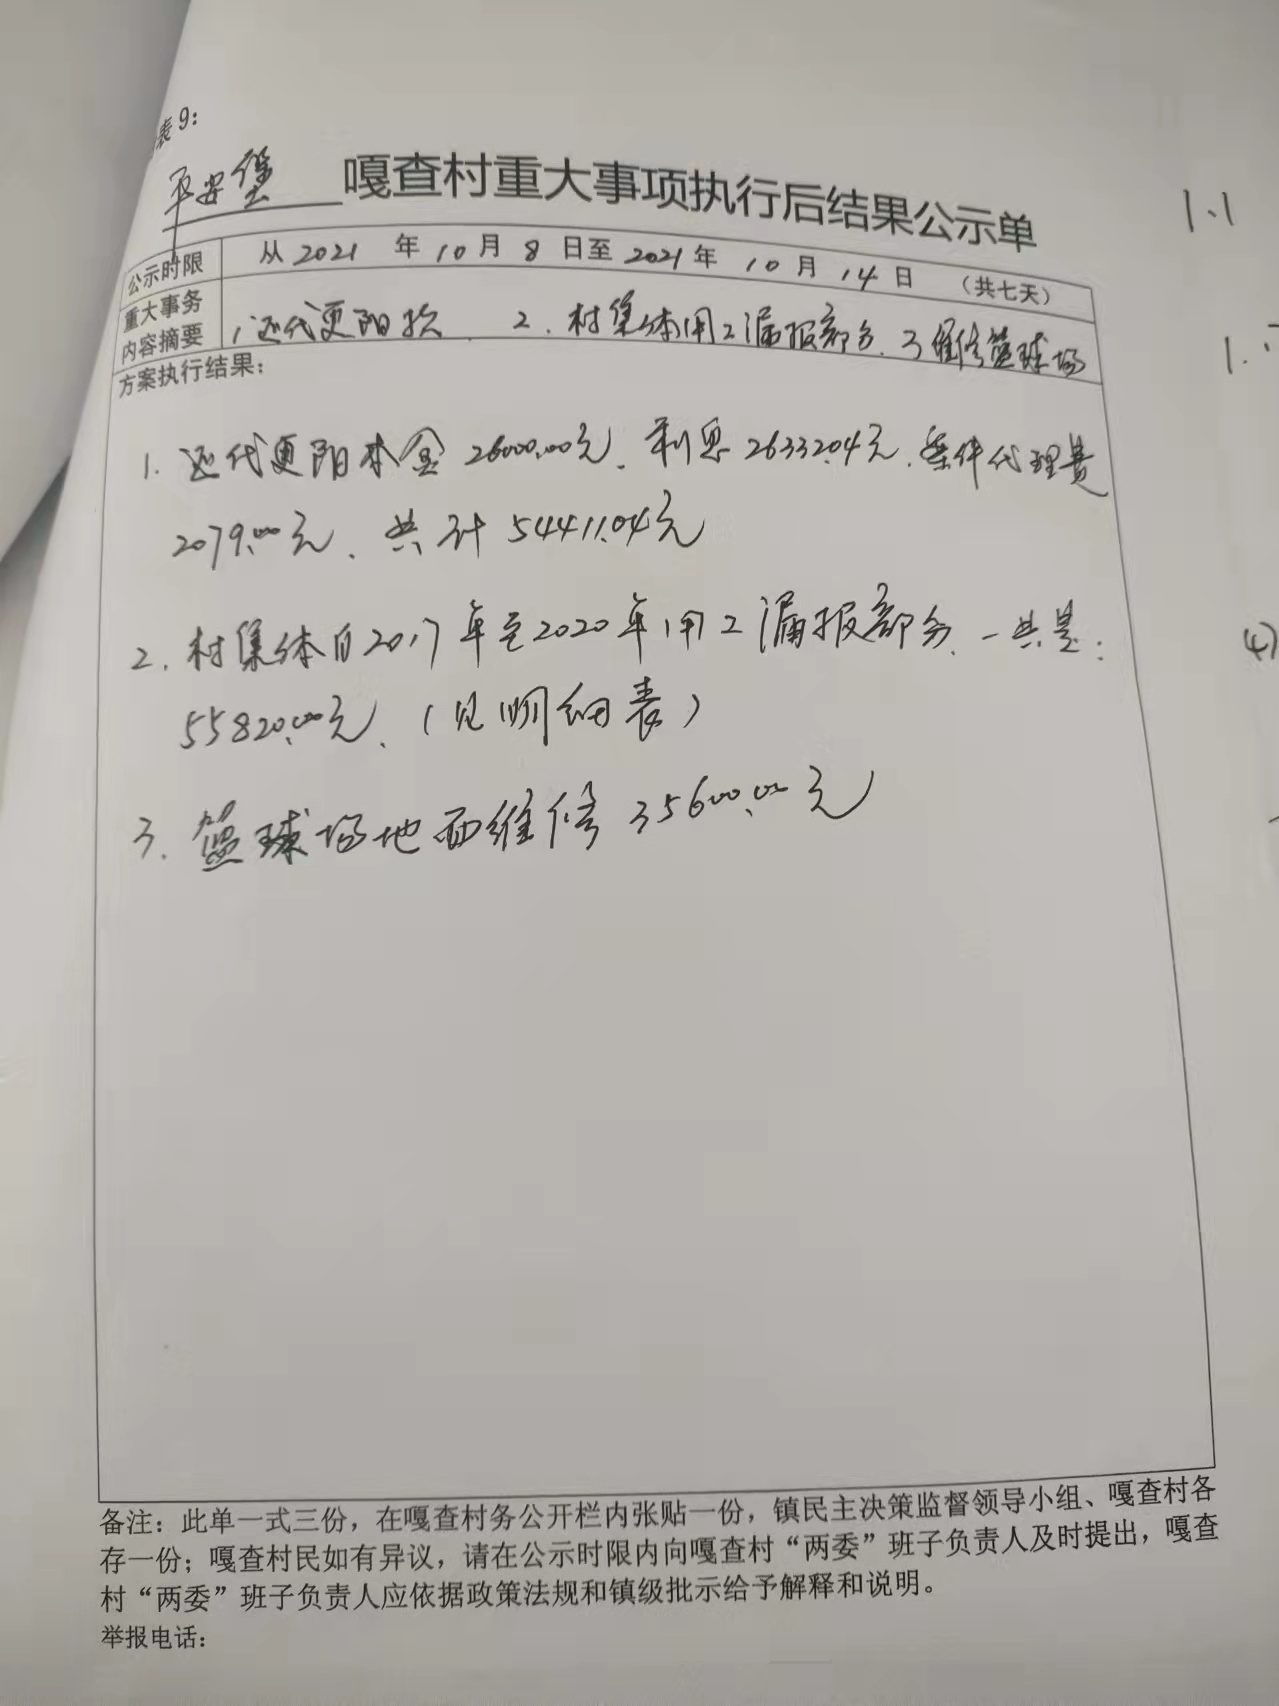 表9：
平安堡 嘎查村重大事项执行后结果公示单
公示时限 从2021年10月8日至2021年10月14日（共七天）
重大事务内容摘要 1还代更阳款 2.村集体用工漏报部分.3维修篮球场
方案执行结果：
1.还代更阳本金26000.00元、利息26332.04元、案件代理费
2079.00元、共计54411.04元
2.村集体自2017年至2020年用工漏报部分、一共是：
55820.00元、（见明细表）
3.篮球场地面维修35600.00元
备注：此单一式三份，在嘎查村务公开栏内张贴一份，镇民主决策监督领导小组、嘎查村各
存一份；嘎查村民如有异议，请在公示时限内向嘎查村“两委”班子负责人及时提出，嘎查
村“两委”班子负责人应依据政策法规和镇级批示给予解释和说明。
举报电话：
1.1
1.
4)